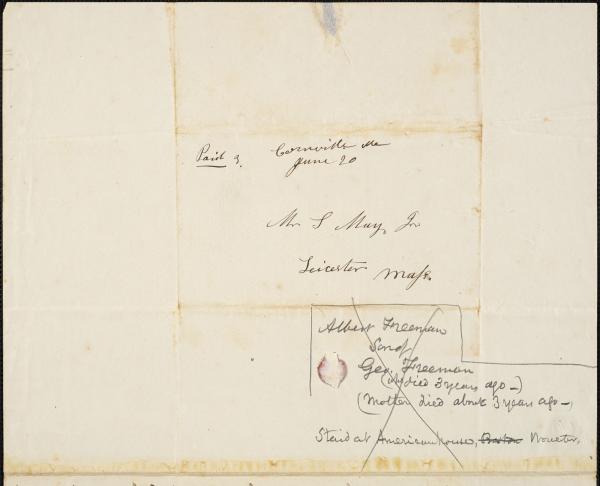 Paid 3. Cornville Me
June 20
Mr S May, Jr
Leicester Mass.
Albert Freeman
Son of
Geo. Freeman
(died 3 years ago —)
(Mother died about 3 years ago —
Staid at American house, Boston Worcester,